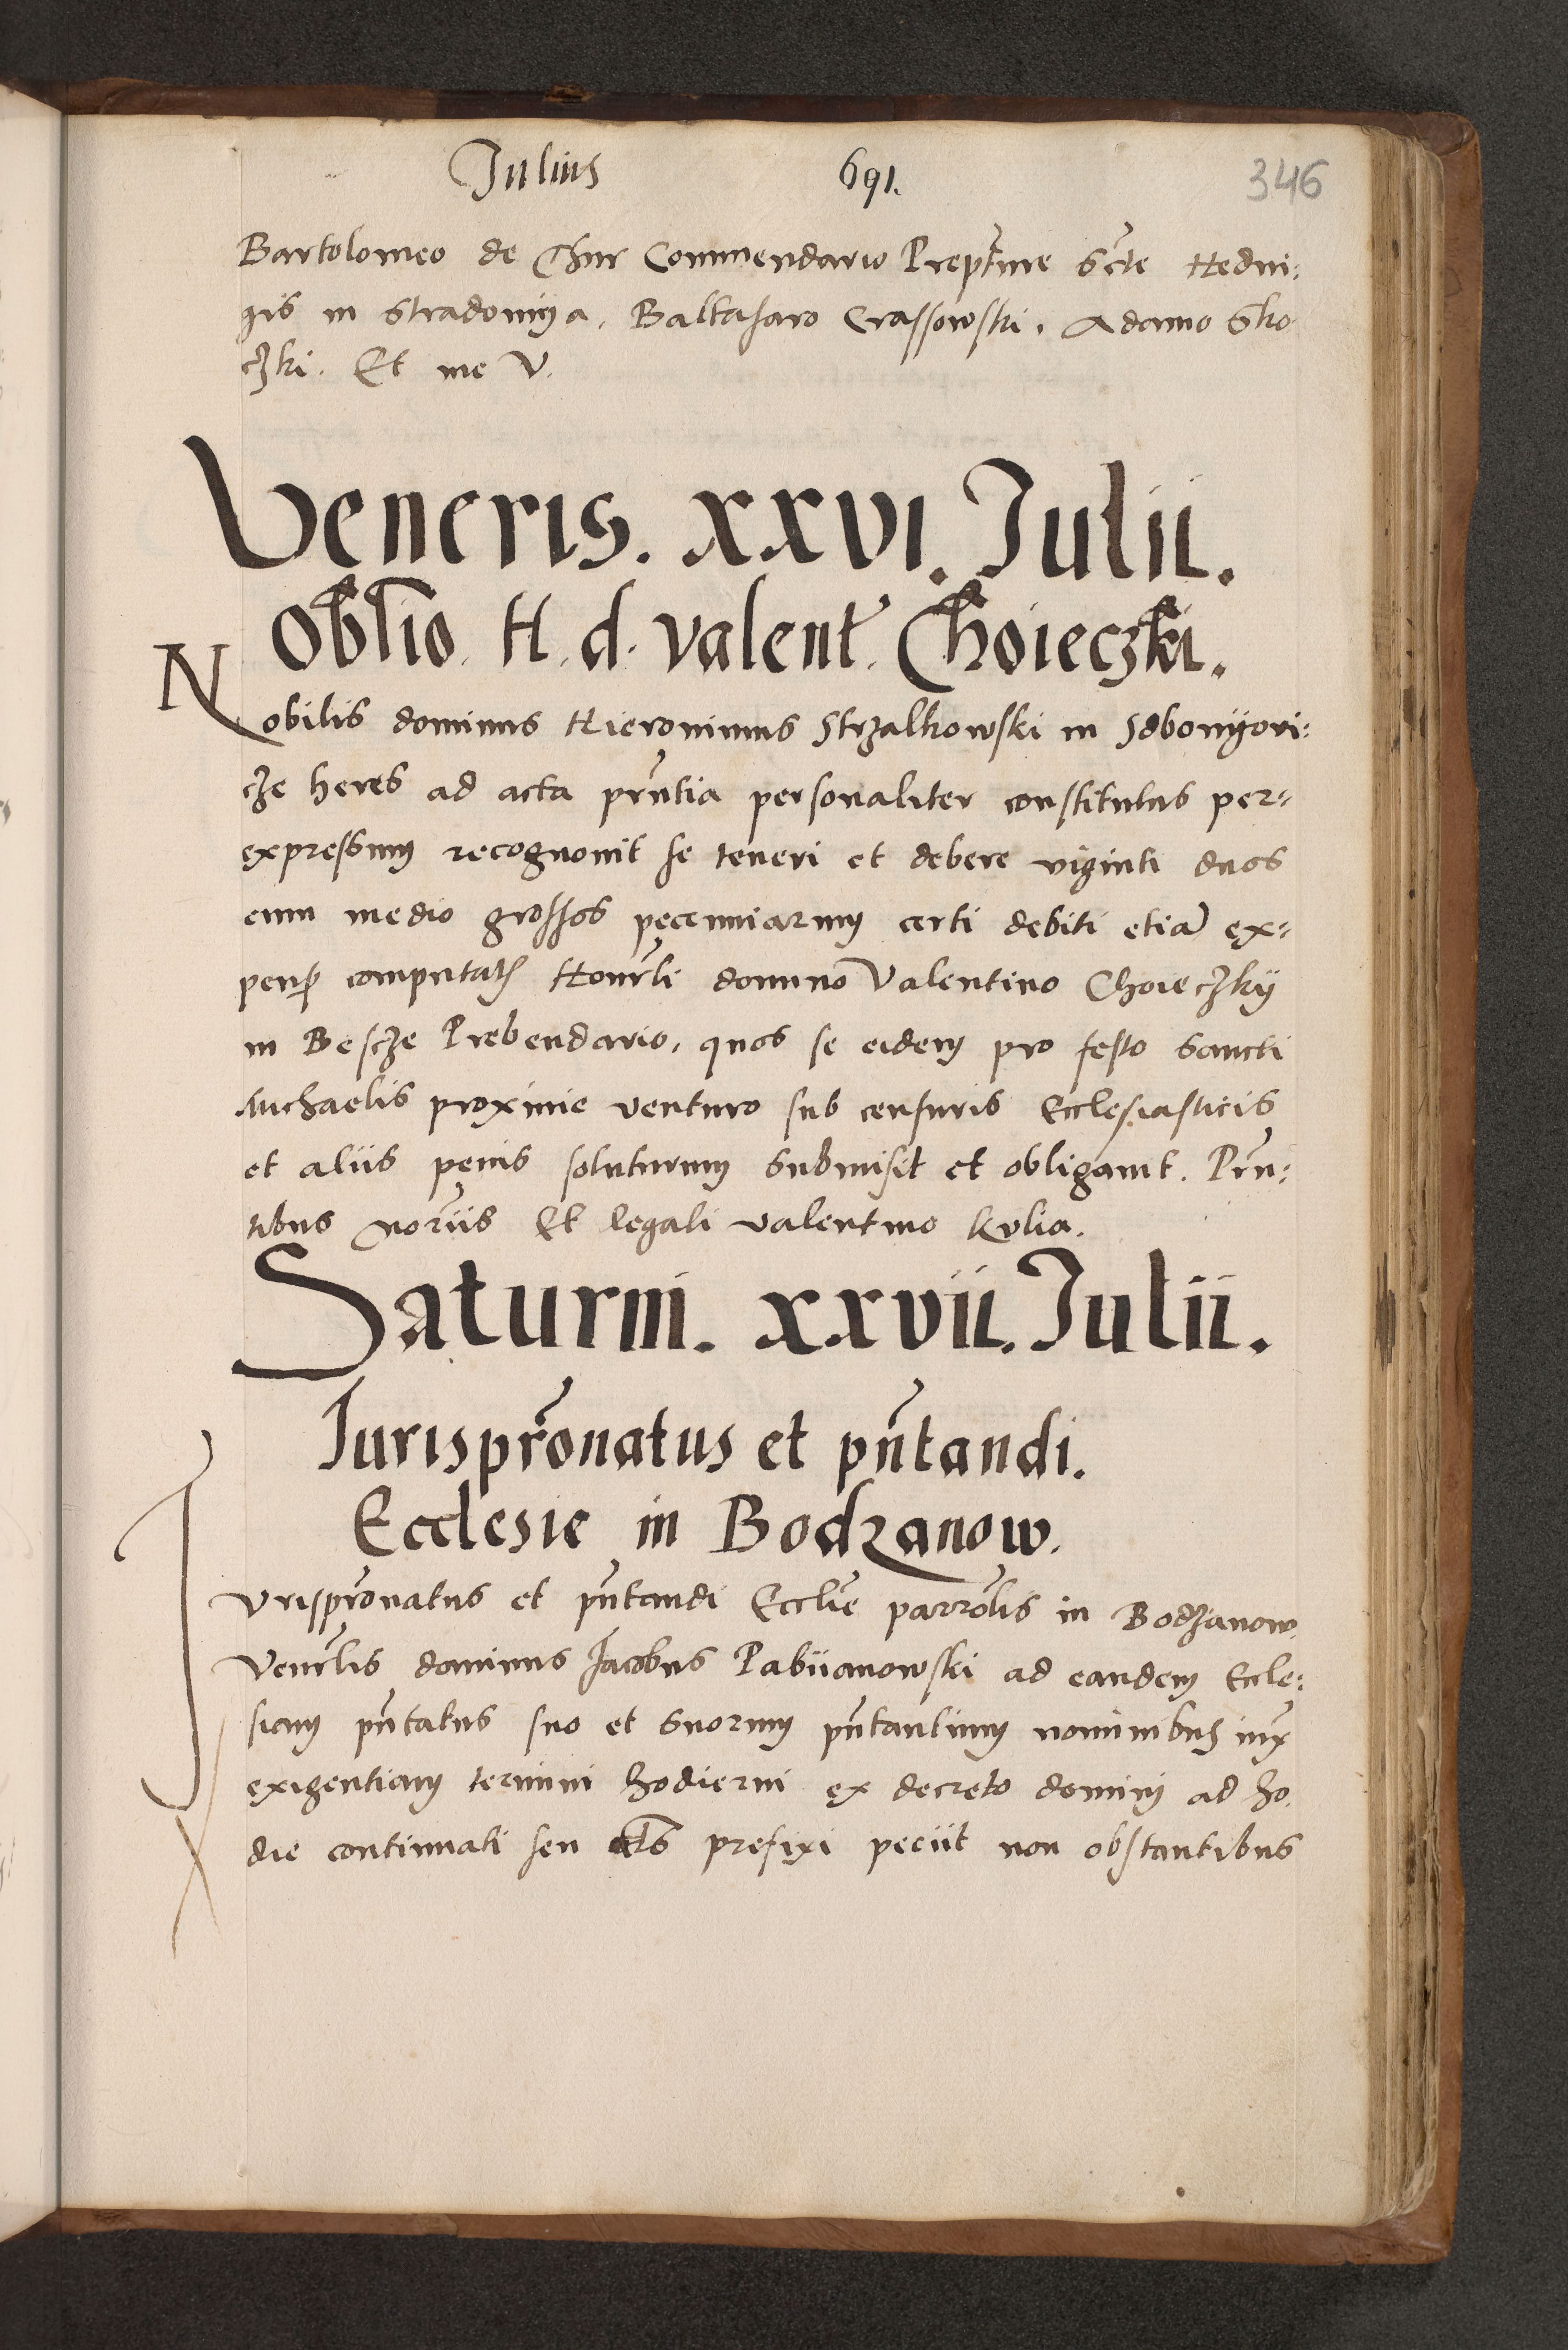 Julius 691. 346
Bartolomeo de Chur Commendario Prept̃ure Scte Hedui:
gis in Stradomya, Baltasaro Crassowski. Adamo Sko
czki. Et me V.
Veneris. XXVI. Julii.
Oblĩo. H. d. Valent̃. Choieczki.
Nobilis dominus Hieronimus Strzalkowski in Sdbonyovi:
cze heres ad acta prñtia personaliter constitutus per=
expressum recognouit se teneri et debere viginti duos
cum medio grossos pecuniarum certi debiti etiã ex=
pens̃ computat̃ Honr̃li domino Valentino Choieczky
in Bescze Prebendario, quos se eidem pro festo Sancti
Michaelis proxime venturo sub censuris Ecclesiasticis
et aliis penis soluturum Submisit et obligauit. Prñ:
tibus nor̃iis Et legali Valentino Kulia.
Saturni. XXVII. Julii.
Jurispr̃onatus et pñtandi.
Ecclesie in Bodzanow.
Jurispr̃onatus et pñtandi Ecclie parrolis in Bodzanow.
Venr̃lis dominus Jacobus Pabiianowski ad eandem Eccle:
siam pñtatus suo et Suorum pñtantium nominibus iux̃
exigentiam termini hodierni ex decreto domini ad ho.
die continuati seu als prefixi peciit non obstantibus